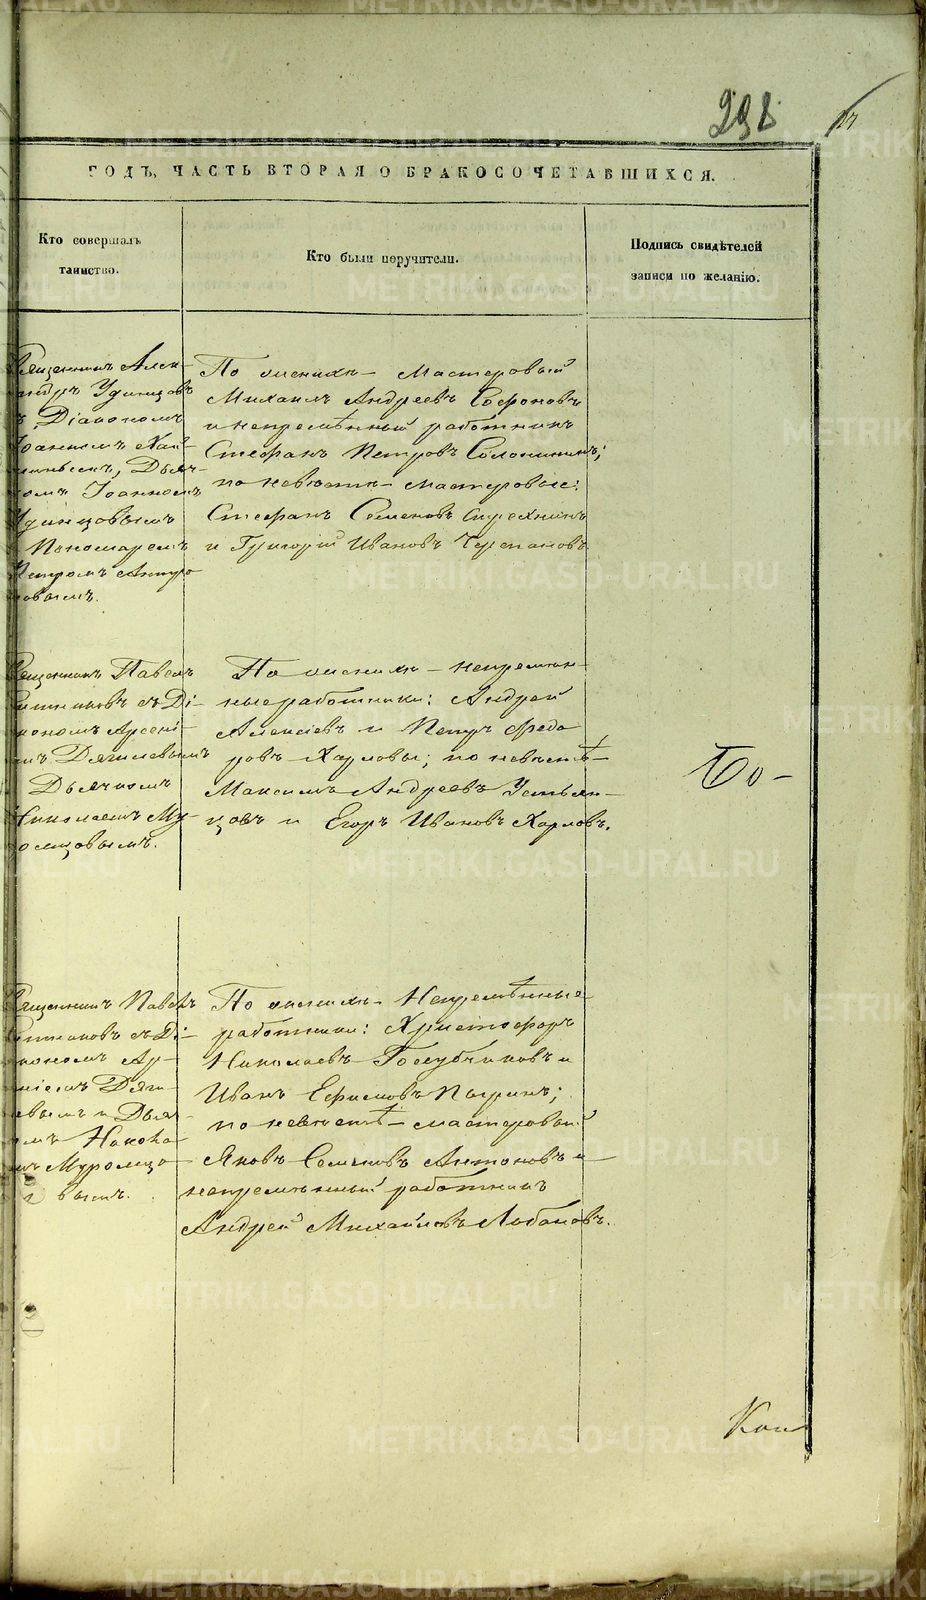 298
ГОДЪ, ЧАСТЬ ВТОРАЯ О БРАКОСОЧЕТАВШИХСЯ.
Кто совершалъ
таинство.
Кто были поручители.
Подпись свидѣтелей
записи по желанію.
Священникъ Алек-
сандръ Удинцовъ
съ Діакономъ
Іоанномъ
Дьяч-
комъ Іоанномъ
Удинцовымъ
и Пономаремъ
Петромъ
По женихѣ – мастеровый
Михаилъ Андреевъ Софоновъ
и непремѣнный работникъ
Стефанъ Петровъ Солонинъ;
по невѣстѣ – мастеровые:
Стефанъ Семеновъ
и Григорій Ивановъ Черепановъ
Священникъ Павелъ
съ Ді-
акономъ Арсені-
емъ Дягилевымъ
Дьячкомъ
Николаемъ Му-
ромцовымъ.
По женихѣ – непремѣн-
ные работники: Андрей
Алексіевъ и Петръ Федо
ровъ Харловы; по невѣстѣ –
Максимъ Андреевъ Устьян-
цовъ и Егоръ Ивановъ Харловъ.
Священникъ Павелъ
съ Ді-
акономъ Ар-
сеніемъ Дяги-
левымъ и Дьяч-
комъ Никола-
емъ Муромцо
вымъ.
По женихѣ – Непремѣнные
работники: Христофоръ
Николаевъ Голубчиковъ и
Иванъ Ефимовъ
по невѣстѣ – мастеровый
Яковъ Семеновъ Антоновъ и
непремѣнный работникъ
Андрей Михайловъ Лобановъ.